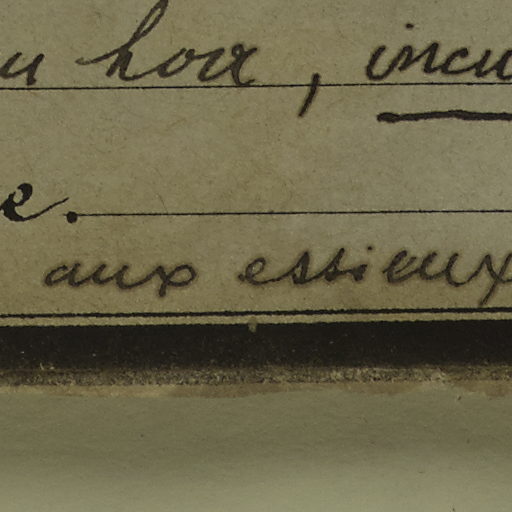 u hoir, incu
e.
aux essieux